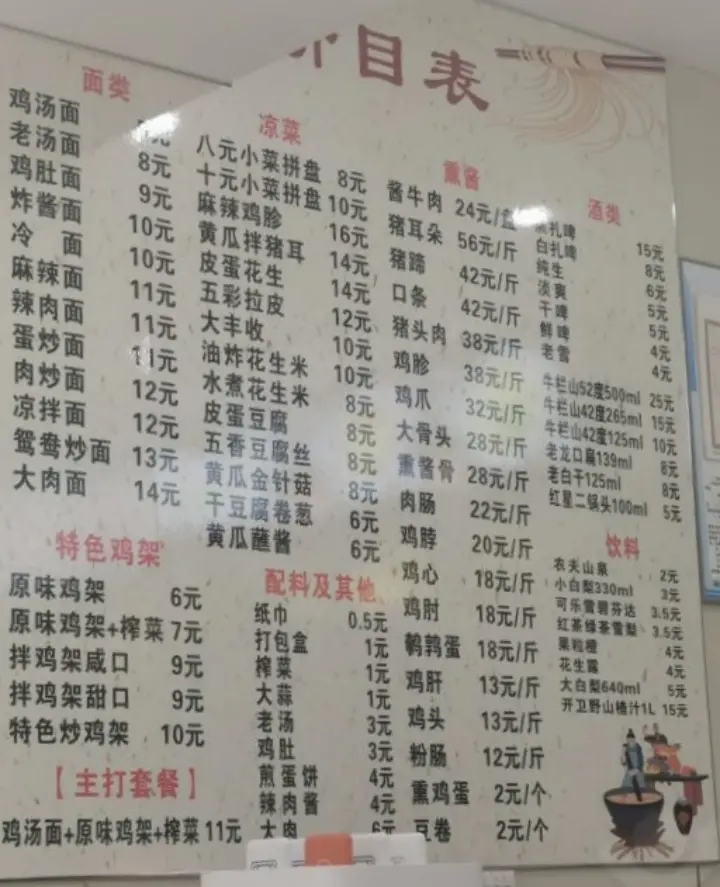 目表
面类
鸡汤面 元
老汤面 8元
鸡肚面 9元
炸酱面 10元
冷 面 10元
麻辣面 11元
辣肉面 11元
蛋炒面 11元
肉炒面 12元
凉拌面 12元
鸳鸯炒面 13元
大肉面 14元
特色鸡架
原味鸡架 6元
原味鸡架+榨菜 7元
拌鸡架咸口 9元
拌鸡架甜口 9元
特色炒鸡架 10元
【主打套餐】
鸡汤面+原味鸡架+榨菜 11元
凉菜
八元小菜拼盘 8元
十元小菜拼盘 10元
麻辣鸡胗 16元
黄瓜拌猪耳 14元
皮蛋花生 14元
五彩拉皮 12元
大丰收 10元
油炸花生米 10元
水煮花生米 8元
皮蛋豆腐 8元
五香豆腐丝 8元
黄瓜金针菇 8元
干豆腐卷葱 6元
黄瓜蘸酱 6元
配料及其他
纸巾 0.5元
打包盒 1元
榨菜 1元
大蒜 1元
老汤 3元
鸡肚 3元
煎蛋饼 4元
辣肉酱 4元
大肉 6元
熏酱
酱牛肉 24元/
猪耳朵 56元/斤
猪蹄 42元/斤
口条 42元/斤
猪头肉 38元/斤
鸡胗 38元/斤
鸡爪 32元/斤
大骨头 28元/斤
熏酱骨 28元/斤
肉肠 22元/斤
鸡脖 20元/斤
鸡心 18元/斤
鸡肘 18元/斤
鹌鹑蛋 18元/斤
鸡肝 13元/斤
鸡头 13元/斤
粉肠 12元/斤
熏鸡蛋 2元/个
豆卷 2元/个
酒类
扎啤 15元
白扎啤 8元
纯生 6元
淡爽 5元
干啤 5元
鲜啤 4元
老雪 4元
牛栏山52度500ml 25元
牛栏山42度265ml 15元
牛栏山42度125ml 10元
老龙口扁139ml 8元
老白干125ml 8元
红星二锅头100ml 5元
饮料
农夫山泉 2元
小白梨330ml 3元
可乐雪碧芬达 3.5元
红茶绿茶雪梨 3.5元
果粒橙 4元
花生露 4元
大白梨640ml 5元
开卫野山楂汁1L 15元